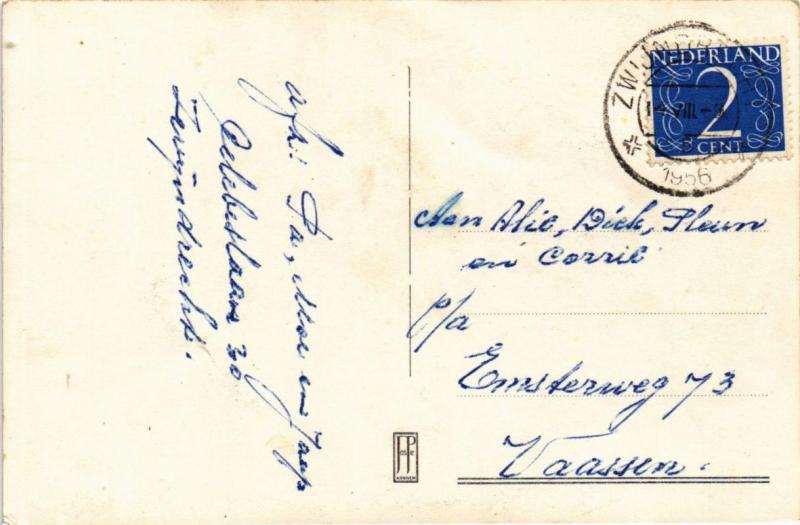 Afz: Pa, Moe en Jaap
Celebeslaan 30
Zwijndrecht.
NEDERLAND
2
CENT
1956
Aan Alie, Dick, Pleun
en Corrie
p/a
Emsterweg 73
Vaassen.